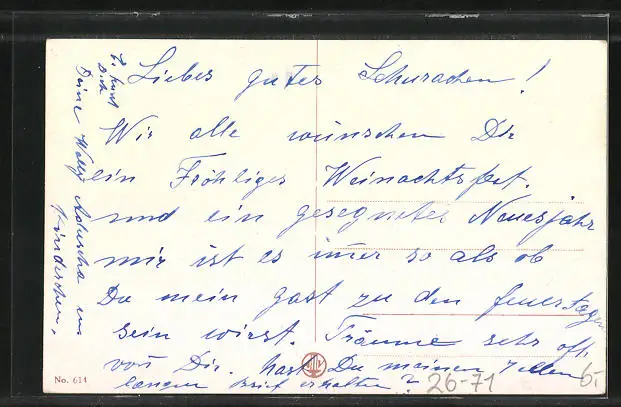 Liebes gutes Schurachen!
Wir alle wünschen Dir
ein Fröhliges Weinachtsfest.
und ein gesegnetes Neuesjahr
mir ist es imer so als ob
Du mein gast zu den feuertagen
sein wirst. Träume sehr oft
von Dir. hast Du meinen
langen Brief erhalten?
Deine Wally
Kinderchen,
No. 614
26-71
6.-